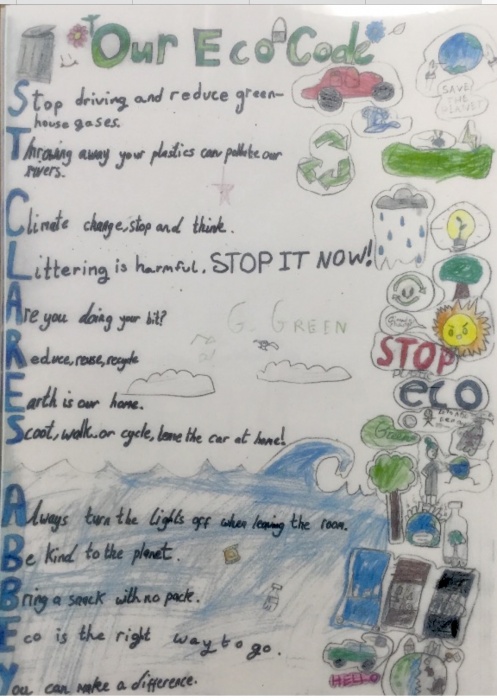 Our Eco Code
Stop driving and reduce green-
house gases.
SAVE
THE
PLANET!
Throwing away your plastics can pollute our
rivers.
Climate change, stop and think.
Littering is harmful. STOP IT NOW!
Are you doing your bit?
G. GREEN
Reduce, reuse, recycle
STOP
Earth is our home.
eco
Scoot, walk or cycle, leave the car at home!
Green
Always turn the lights off when leaving the room.
Be kind to the planet.
Bring a snack with no pack.
Eco is the right way to go.
You can make a difference.
HELLO